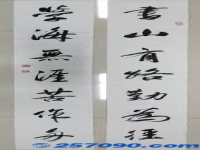 書山有路勤為徑
學海無涯苦作舟
257090.com